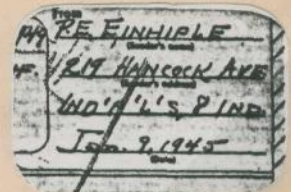 From
R.E. EINHIPLE
(Sender's name)
219 HANCOCK AVE
(Sender's address)
IND'P'L'S 8 IND.
Jan. 9, 1945
(Date)